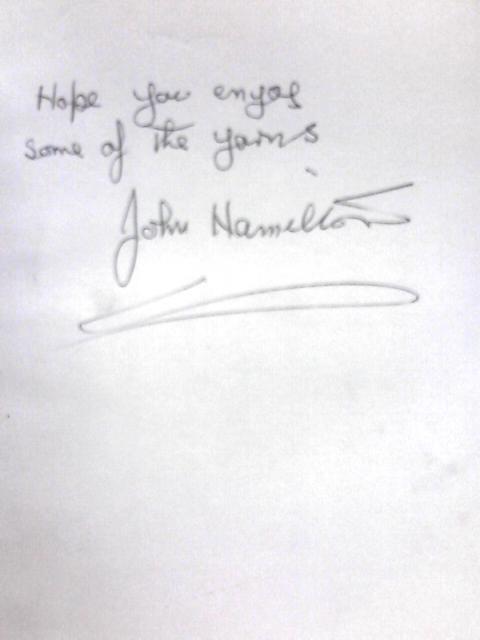 Hope you enjoy
some of the yarns
John Hamilton